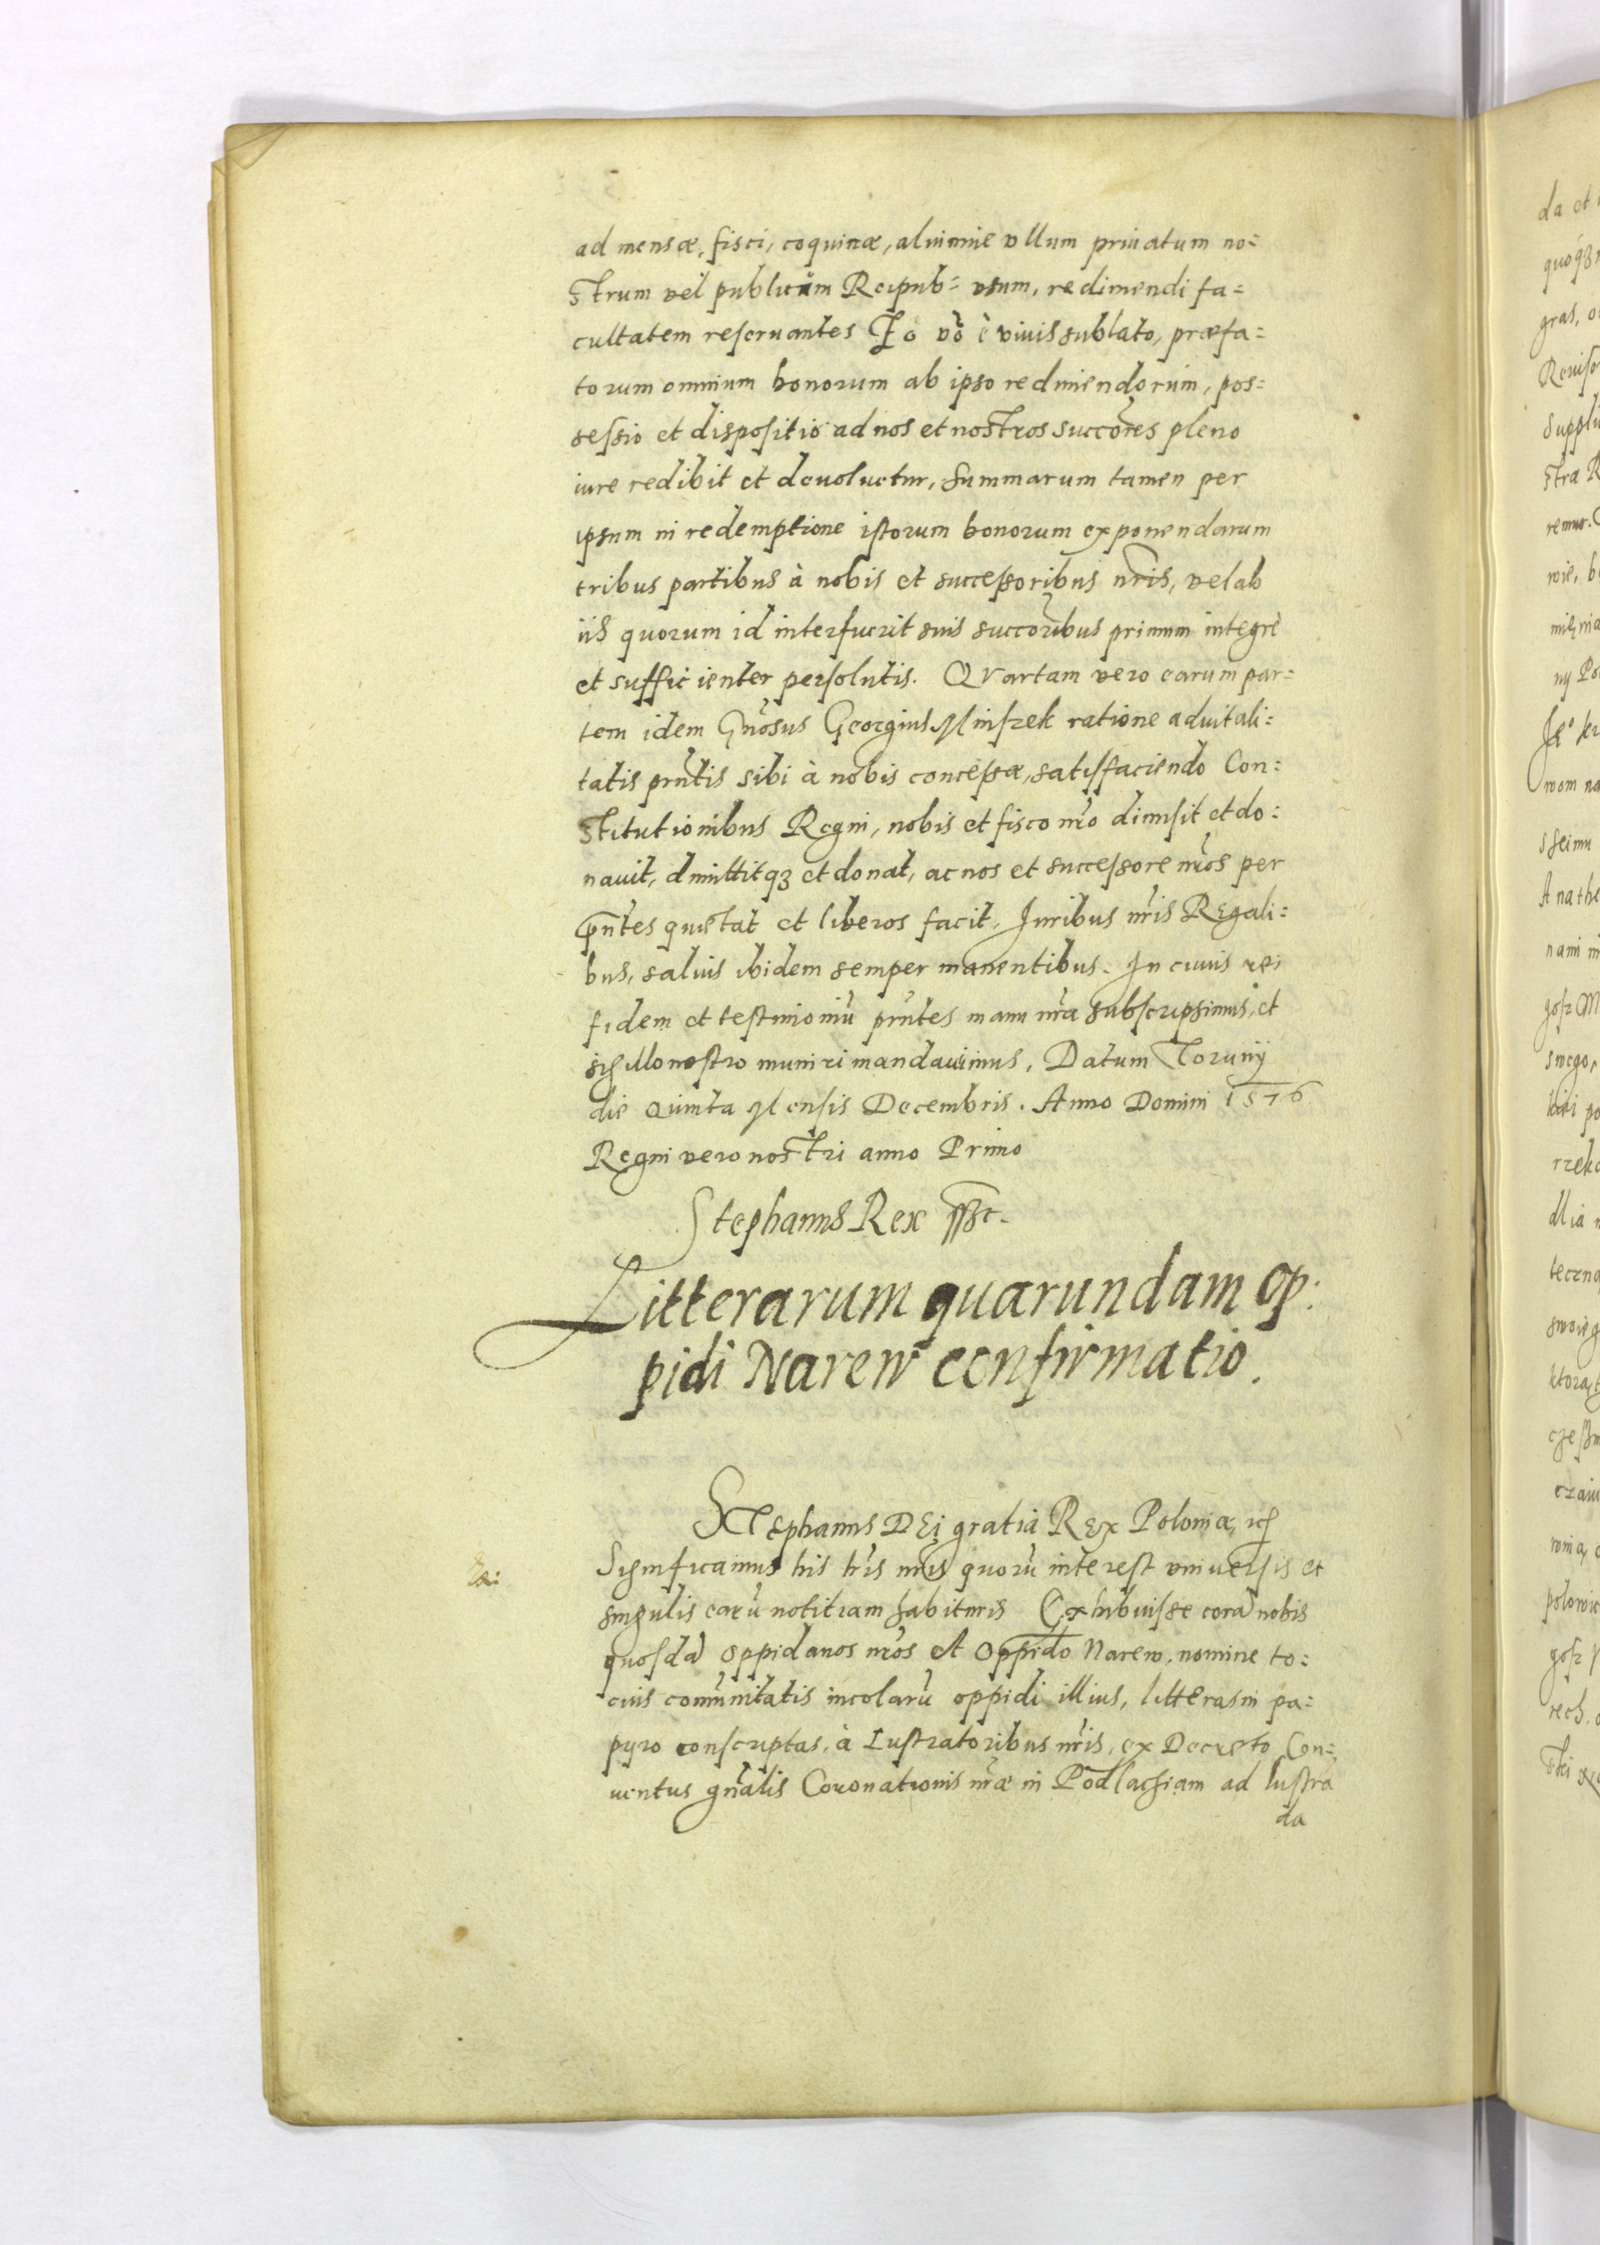 ad mensæ, fisci, coquinæ, aliumue ullum priuatum no=
strum vel publicum Reipub= usum, redimendi fa=
cultatem reseruantes Eo võ è viuis sublato, præfa=
torum omnium bonorum ab ipso redimendorum, pos=
sessio et dispositio ad nos et nostros succõres pleno
iure redibit et deuoluetur, Summarum tamen per
ipsum in redemptione istorum bonorum exponendarum
tribus partibus à nobis et successoribus nr̃is, vel ab
iis quorum id interfuerit suis succoribus primum integrè
et sufficienter persolutis. Quartam vero earum par=
tem idem Gñosus Georgius Mniszek ratione aduitali=
tatis prñtis sibi à nobis concessæ, satisfaciendo Con=
stitutionibus Regni, nobis et fisco nr̃o dimisit et do=
nauit, dimittitqꝫ et donat, ac nos et successore nr̃os per
p̃ntes quietat et liberos facit, Iuribus nr̃is Regali=
bus, saluis ibidem semper manentibus. In cuius rei
fidem et testimoniũ prñtes manu nr̃a subscripsimus, et
sigillo nostro muniri mandauimus. Datum Torunij
die Quinta Mensis Decembris. Anno Domini 1576
Regni vero nostri anno Primo
Stephanus Rex sst.
Litterarum quarundam Op:
pidi Narew confirmatio.
Stephanus DEi gratia REx Poloniæ, etc
Significamus his lr̃is nr̃is quorũ interest vniuersis et
singulis earũ notitiam habituris Exhibuisse corã nobis
quosdã oppidanos nr̃os et Oppido Narew, nomine to=
cius comũnitatis incolarũ oppidi illius, litteras in pa=
pyro conscriptas, à Lustratoribus nr̃is, ex Decreto Con=
uentus gñalis Coronationis nr̃æ in Podlachiam ad lustra
da